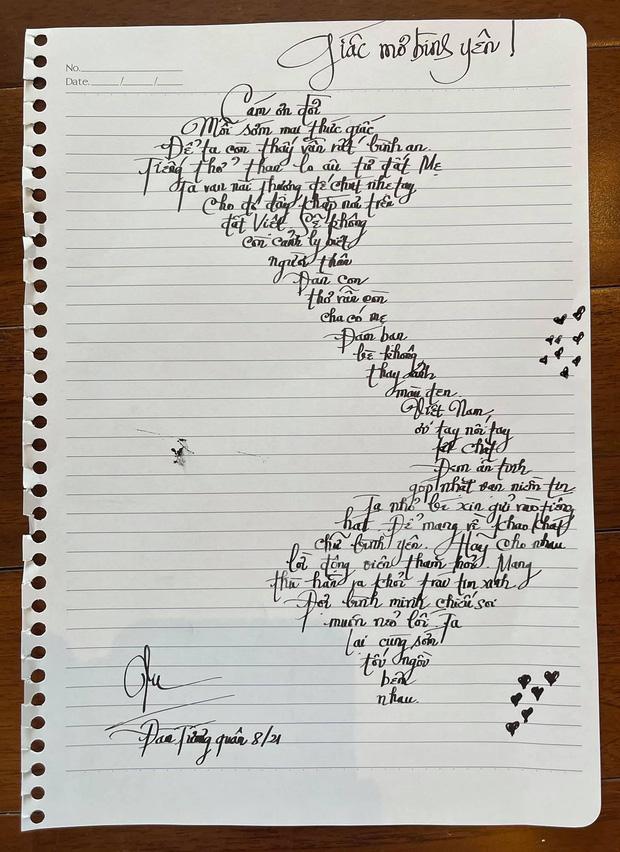 Giấc mơ bình yên!
No.
Date. / /
Cám ơn đời
Mỗi sớm mai thức giấc
Để ta còn thấy vẫn rất bình an
Tiếng thở than lo âu từ đất Mẹ
Ta van nài thượng đế chút nhẹ tay
Cho đó đây khắp nơi trên
đất Việt Sẽ không
còn cảnh ly biệt
người thân
Đàn con
thơ vẫn còn
cha có mẹ
Đám bạn
bè không
thay ảnh
màu đen
Việt Nam
ơi tay nối tay
kết chặt
Đem ân tình
góp nhặt vạn niềm tin
Ta nhỏ bé xin gửi vào tiếng
hát Để mang về khao khát
chữ bình yên. Hãy cho nhau
lời động viên thăm hỏi. Mang
thù hận ra khỏi trái tim xanh
Đợi bình minh chiếu soi
muôn nẻo lối Ta
lại cùng sớm
tối ngồi
bên
nhau.
Đàm Tướng quân 8/21